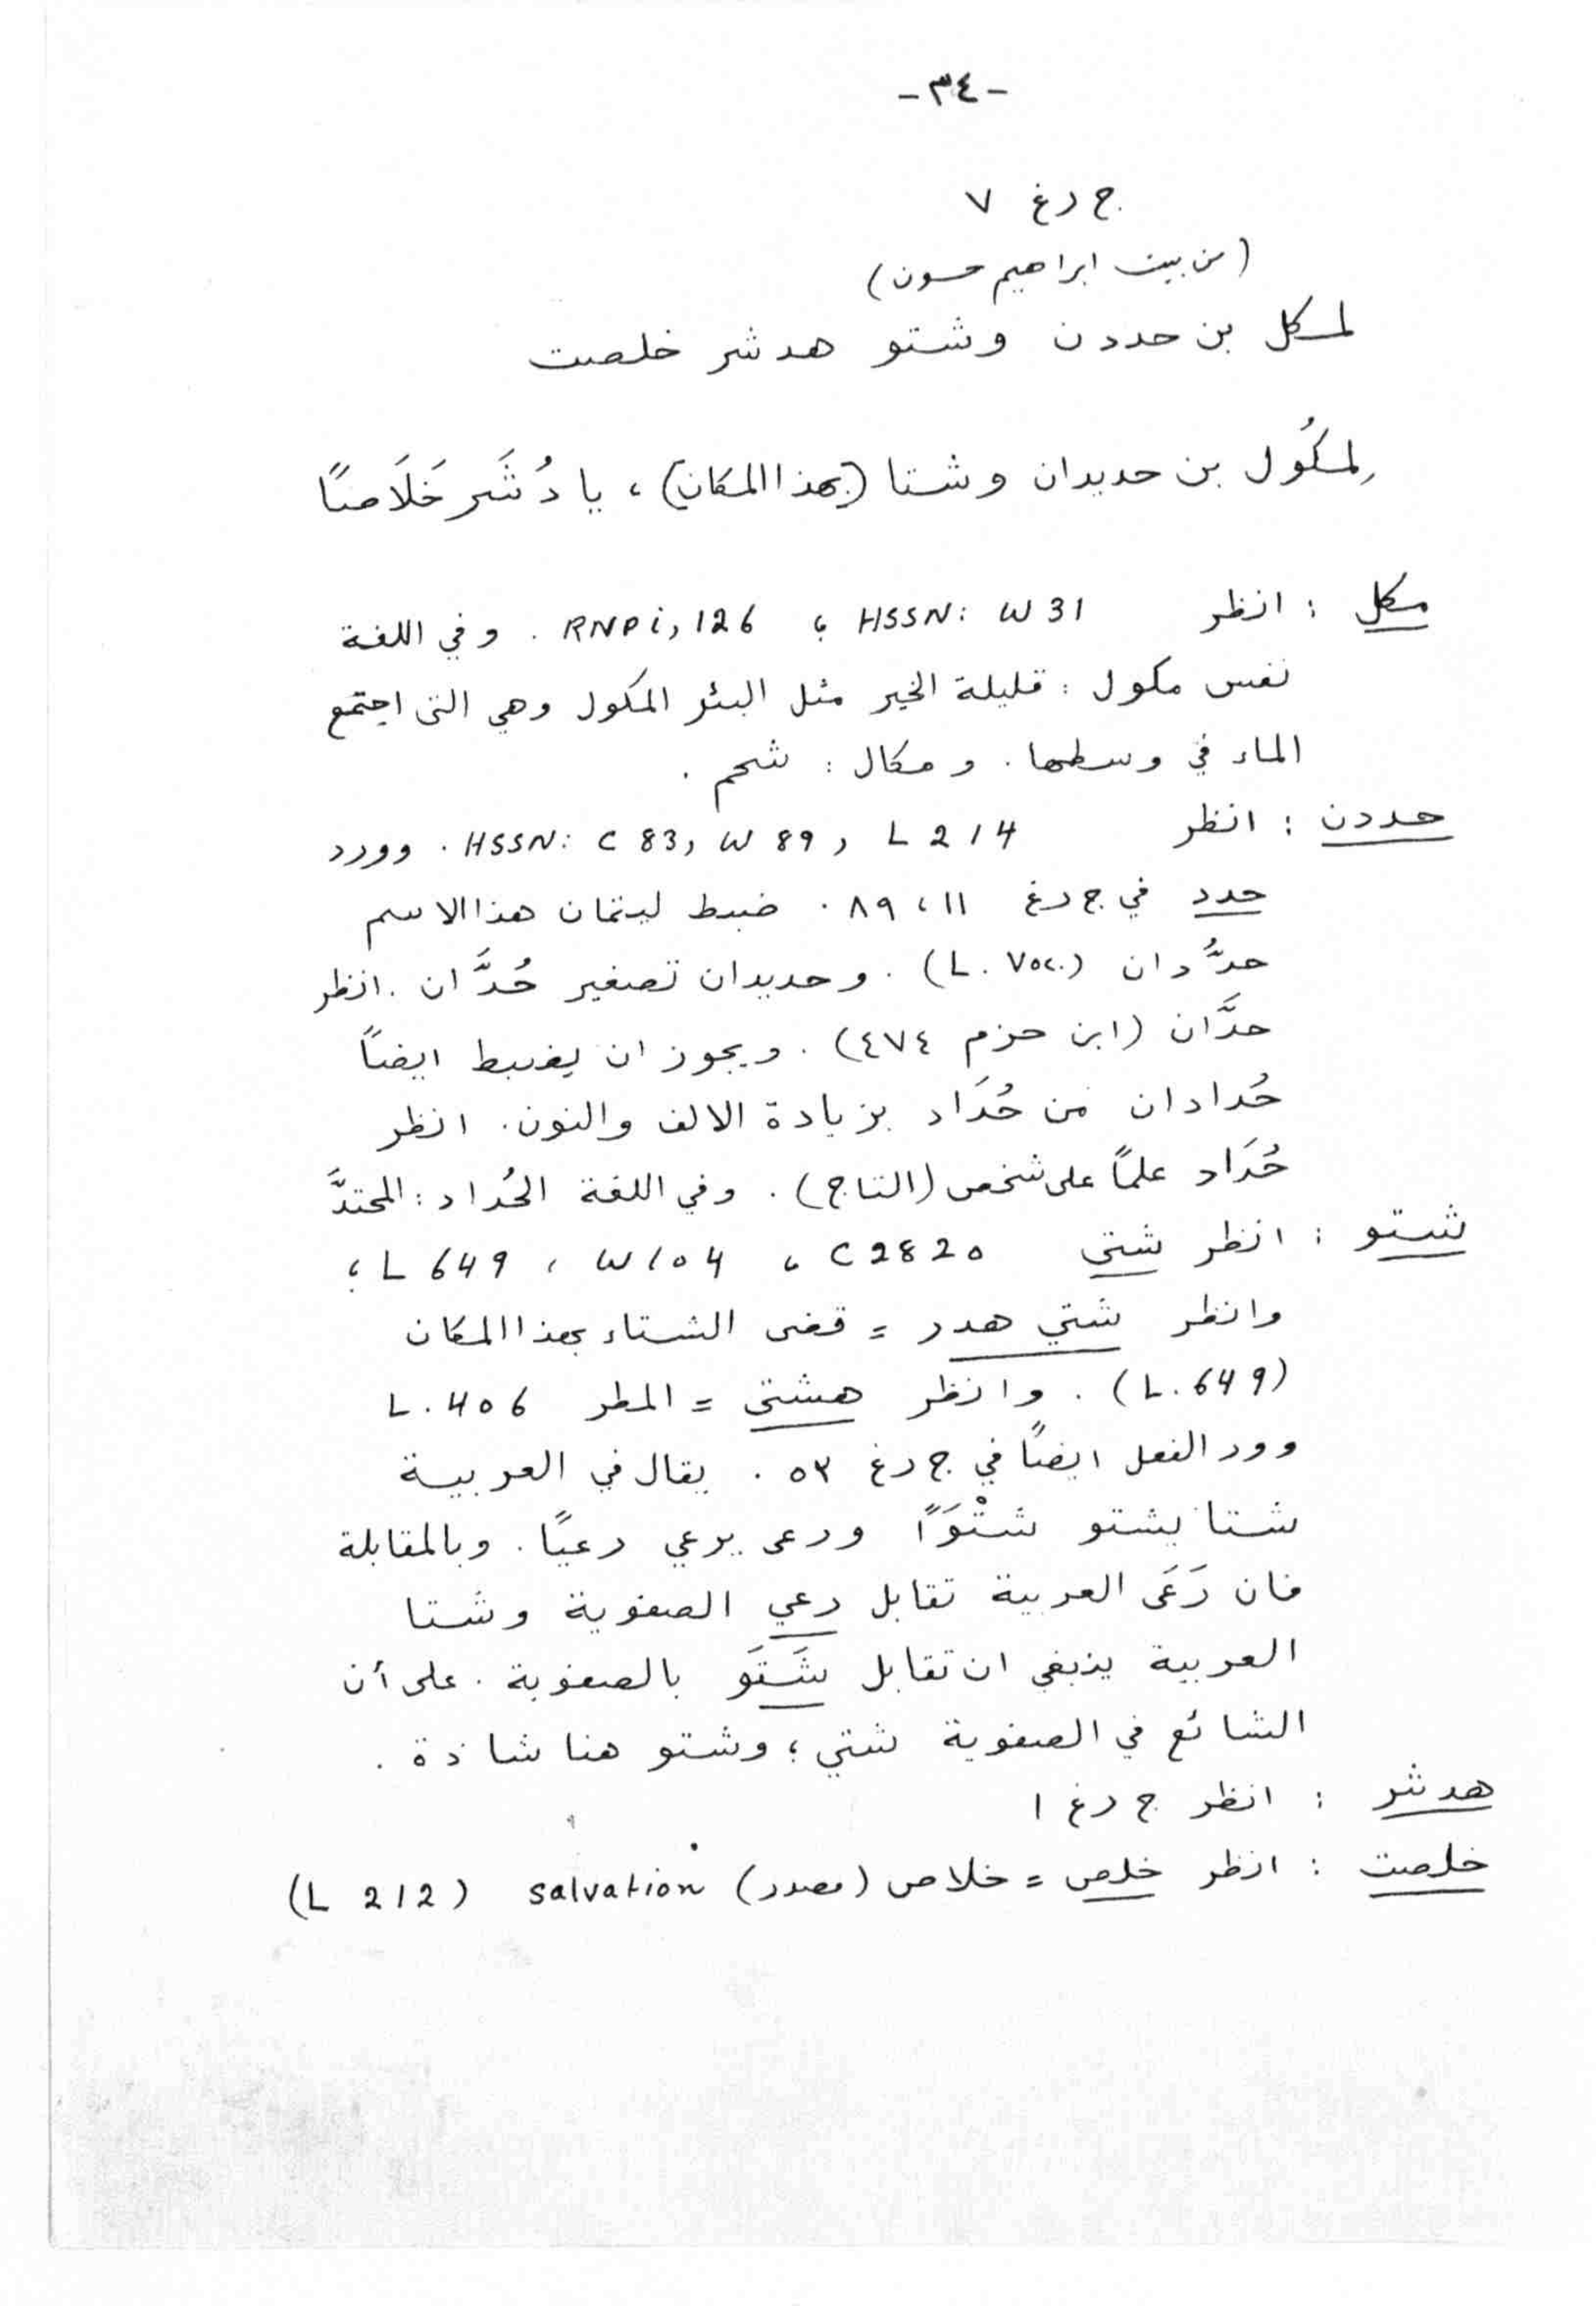 -٣٤-
ج درغ ٧
(من بيت ابراهيم حسون)
لمكل بن حددن وشتو هدشر خلصت
لِمكُول بن حديدان وشتا (بهذا المكان)، يا دُشَر خَلَاصًا
مكل : انظر HSSN: W 31 ؛ RNP i, 126 . وفي اللغة
نفس مكول : قليلة الخير مثل البئر المكول وهي التى اجتمع
الماء في وسطها . ومكال : شحم .
حددن : انظر HSSN: C 83, W 89, L 214 . وورد
حدد في ج درغ ١١ ، ٨٩ . ضبط ليتمان هذا الاسم
حدُّدان (L. ٧٥٢) . وحديدان تصغير حُدَّان . انظر
حدَّان (ابن حزم ٤٧٤) . ويجوز ان يضبط ايضاً
حُدادان من حُدَاد بزيادة الالف والنون . انظر
حُدَاد علماً على شخص (التاج) . وفي اللغة الحُداد : المحتدَّ
شتو : انظر شتي C 2820 ، W 104 ، L 649 ؛
وانظر شتي هدر = قضى الشتاء بهذا المكان
(L. 649) . وانظر هشتي = المطر L. 406
وورد الفعل ايضاً في ج درغ ٥٣ . يقال في العربية
شتا يشتو شتْوَاً ورعى يرعي رعيًا . وبالمقابلة
فان رَعَى العربية تقابل رعي الصفوية وشتا
العربية ينبغي ان تقابل شَتَو بالصفوية . على أن
الشائع في الصفوية شتي ؛ وشتو هنا شاذة .
هدشر : انظر ج درغ ١
خلصت : انظر خلص = خلاص (مصدر) salvation (L 212)